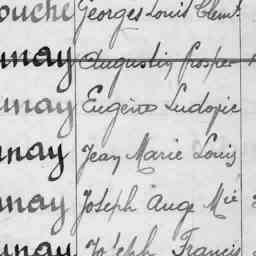 ouche Georges Louis Clemt
unay Augustin Prosper
unay Eugène Ludovic
unay Jean Marie Louis
unay Joseph Ange Mie
unay Joseph Francis